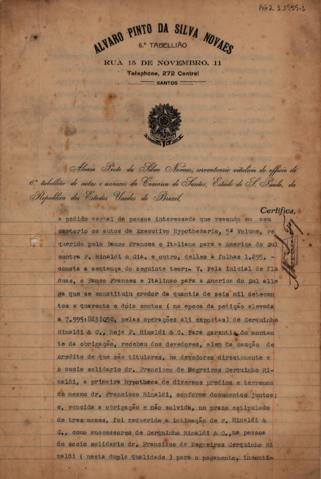 AG2.1.1555-1
ALVARO PINTO DA SILVA NOVAES
6.º TABELLIÃO
RUA 15 DE NOVEMBRO, 11
Telephone, 272 Central
SANTOS
Alvaro Pinto da Silva Novaes, serventuario vitalicio do officio de
6.º tabellião de notas e annexos da Comarca de Santos, Estado de S. Paulo, da
Republica dos Estados Unidos do Brazil,
Certifica,
a pedido verbal de pessoa interessada que revendo em seu
cartorio os autos de Executivo Hypothecario, 5º Volume, re-
querido pelo Banco Francez e Italiano para a America do Sul
contra F. Rinaldi & Cia. e outro, delles á folhas 1.295,
consta a sentença do seguinte teor:- V. Pela inicial de fls
duas, o Banco Francez e Italiano para a America do Sul alle-
ga que se constituiu credor da quantia de seis mil setecen-
tos e quarenta e dois contos ( na epoca da petição elevada
a pelas operações ali expostas) de Cerquinho
Rinaldi & C., hoje F. Rinaldi & C. Para garantia do montan-
te da obrigação, recebeu dos devedores, alem da caução de
credito de que são titulares, os devedores directamente e
o socio solidario dr. Francisco de Negreiros Cerquinho Ri-
naldi, a primeira hypotheca de diversos predios e terrenos
do mesmo dr. Francisco Rinaldi, conforme documentos juntos;
e, vencida a obrigação e não solvida, no prazo estipulado
de tres mezes, foi requerida a intimação de F. Rinaldi &
C., como successores de Cerquinho Rinaldi & C., na pessoa
do socio solidario dr. Francisco de Negreiros Cerquinho Ri
naldi ( nesta dupla qualidade ) para o pagamento,